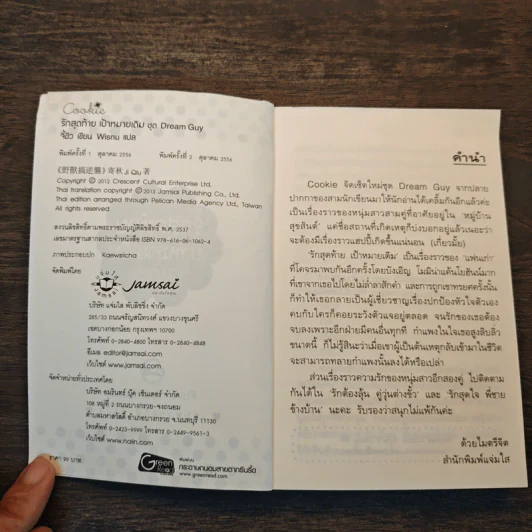 Cookie
รักสุดท้าย เป้าหมายเดิม ชุด Dream Guy
จี้ชิว เขียน Wisnu แปล
พิมพ์ครั้งที่ 1 ตุลาคม 2556 พิมพ์ครั้งที่ 2 ตุลาคม 2556
《野獸搞逆襲》寄秋 Ji Qiu 著
Copyright © 2012 Crescent Cultural Enterprise Ltd.
Thai translation copyright © 2013 Jamsai Publishing Co., Ltd.
Thai edition arranged through Pelican Media Agency Ltd., Taiwan
All rights reserved.
สงวนลิขสิทธิ์ตามพระราชบัญญัติลิขสิทธิ์ พ.ศ. 2537
เลขมาตรฐานสากลประจำหนังสือ ISBN 978-616-06-1062-4
ภาพประกอบปก Kaewsricha
จัดพิมพ์โดย
แจ่มใส
Jamsai
บริษัท แจ่มใส พับลิชชิ่ง จำกัด
285/33 ถนนจรัญสนิทวงศ์ แขวงบางขุนศรี
เขตบางกอกน้อย กรุงเทพฯ 10700
โทรศัพท์ 0-2840-4800 โทรสาร 0-2840-4848
อีเมล editor@jamsai.com
เว็บไซต์ www.jamsai.com
จัดจำหน่ายทั่วประเทศโดย
บริษัท อมรินทร์ บุ๊ค เซ็นเตอร์ จำกัด
108 หมู่ที่ 2 ถนนบางกรวย-จงถนอม
ตำบลมหาสวัสดิ์ อำเภอบางกรวย จ.นนทบุรี 11130
โทรศัพท์ 0-2423-9999 โทรสาร 0-2449-9561-3
เว็บไซต์ www.naiin.com
ราคา 99 บาท
Green Read
พิมพ์บน
กระดาษถนอมสายตากรีนรี้ด
www.greenread.com
คำนำ
Cookie จัดเซ็ตใหม่ชุด Dream Guy จากปลาย
ปากกาของสามนักเขียนมาให้นักอ่านได้เคลิ้มกันอีกแล้วค่ะ
เป็นเรื่องราวของหนุ่มสาวสามคู่ที่อาศัยอยู่ใน 'หมู่บ้าน
สุขสันต์' แค่ชื่อสถานที่เกิดเหตุก็บ่งบอกอยู่แล้วเนอะว่า
จะต้องมีเรื่องราวแฮปปี้เกิดขึ้นแน่นอน (เกี่ยวมั้ย)
'รักสุดท้าย เป้าหมายเดิม' เป็นเรื่องราวของ 'แฟนเก่า'
ที่โคจรมาพบกันอีกครั้งโดยบังเอิญ โมมิน่าแค้นไยฮันน์มาก
ที่เขาจากเธอไปโดยไม่ล่ำลาสักคำ และการถูกเขาทรยศครั้งนั้น
ก็ทำให้เธอกลายเป็นผู้เชี่ยวชาญเรื่องปกป้องหัวใจตัวเอง
คบกับใครก็คอยระวังตัวแจอยู่ตลอด จนรักของเธอต้อง
จบลงเพราะอีกฝ่ายมีคนอื่นทุกที กำแพงในใจเธอสูงลิบลิ่ว
ขนาดนี้ ก็ไม่รู้สินะว่าเมื่อเขาผู้เป็นต้นเหตุกลับเข้ามาในชีวิต
จะสามารถทลายกำแพงนั้นลงได้หรือเปล่า
ส่วนเรื่องราวความรักของหนุ่มสาวอีกสองคู่ ไปติดตาม
กันได้ใน 'รักต้องลุ้น คู่วุ่นต่างขั้ว' และ 'รักสุดใจ พี่ชาย
ข้างบ้าน' นะคะ รับรองว่าสนุกไม่แพ้กันค่ะ
ด้วยไมตรีจิต
สำนักพิมพ์แจ่มใส